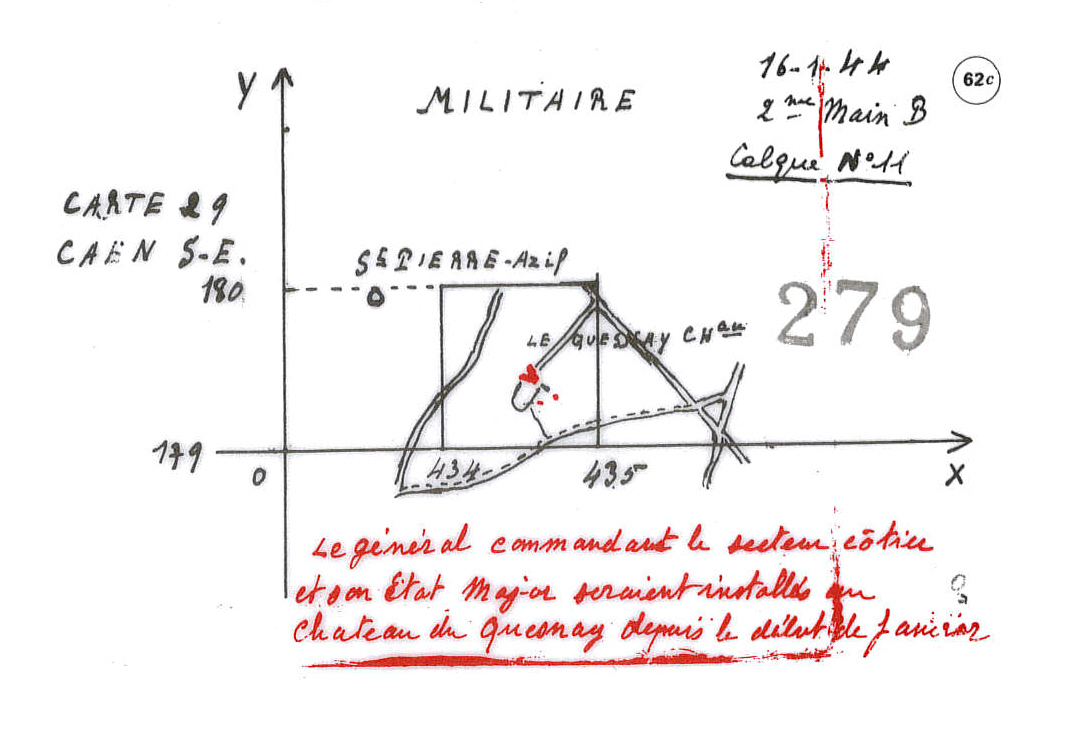 16-1-44
62c
Y
MILITAIRE
2me Main B
Calque N°11
CARTE 29
CAEN S-E.
St PIERRE-Azif
180
279
LE QUESNAY CHau
179
434
435
O
X
Le général commandant le secteur côtier
et son État Major seraient installés au
Chateau du Quesnay depuis le début de Janvier